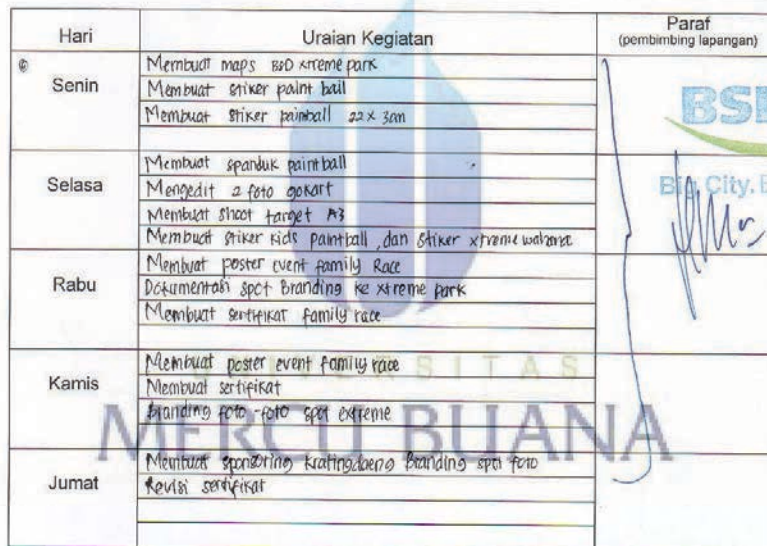 Hari Uraian Kegiatan Paraf
(pembimbing lapangan)
Senin
Membuat maps BSD xtreme park
Membuat stiker paint ball
Membuat stiker painball 22 x 3cm
Selasa
Membuat spanduk paintball
Mengedit 2 foto gokart
Membuat shoot target A3
Membuat stiker kids paintball, dan stiker xtreme wahana
Rabu
Membuat poster event family Race
Dokumentasi spot Branding ke xtreme park
Membuat sertifikat family race
Kamis
Membuat poster event family race
Membuat sertifikat
Branding foto-foto spot extreme
Jumat
Membuat sponsoring kratingdaeng Branding spot foto
Revisi sertifikat
BSD
Big City,
UNIVERSITAS
MERCU BUANA